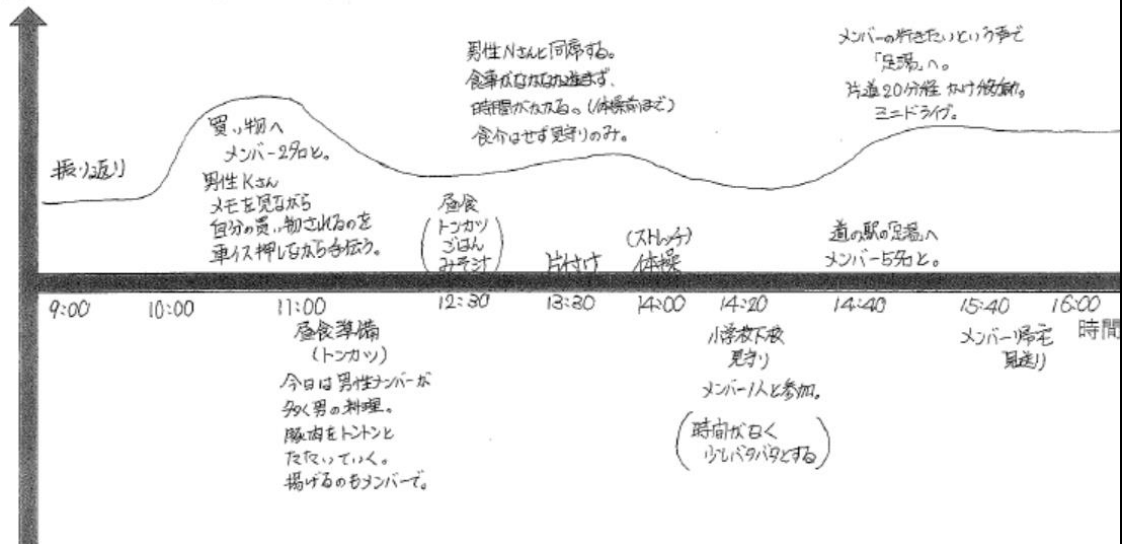 振り返り
買い物へ
メンバー2名と。
男性Kさん
メモを見ながら
自分の買い物されるのを
車イス押しながら手伝う。
男性Nさんと同席する。
食事がなかなか進まず、
時間がかかる。(体操前まで)
食介はせず見守りのみ。
昼食
(トンカツ
ごはん
みそ汁)
片付け
(ストレッチ)
体操
メンバーの行きたいという声で
「足湯」へ。
片道20分程かけ移動。
ミニドライブ。
道の駅の足湯へ
メンバー5名と。
9:00 10:00 11:00 12:30 13:30 14:00 14:20 14:40 15:40 16:00
時間
昼食準備
(トンカツ)
今日は男性メンバーが
多く男の料理。
豚肉をトントンと
たたいていく。
揚げるのもメンバーで。
小学校下校
見守り
メンバー1人と参加。
(時間がなく
少しバタバタとする)
メンバー帰宅
見送り